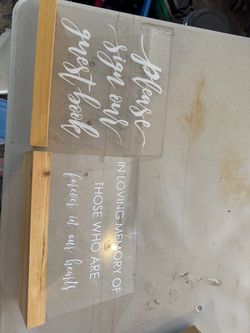 please
sign our
guest book
IN LOVING MEMORY OF
THOSE WHO ARE
forever in our hearts